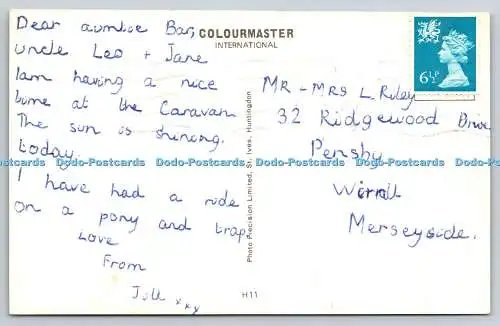 Dear auntie Bar,
uncle Leo + Jane
I am having a nice
time at the Caravan
The sun is shining.
today.
I have had a ride
on a pony and trap
Love
From
Jill xxx
COLOURMASTER
INTERNATIONAL
Photo Precision Limited, St. Ives, Huntingdon
H11
6½P
MR - MRS L. Riley
32 Ridgewood Drive
Pensby
Wirral
Merseyside.
Dodo-Postcards Dodo-Postcards Dodo-Postcards Dodo-Postcards Dodo-Postcards